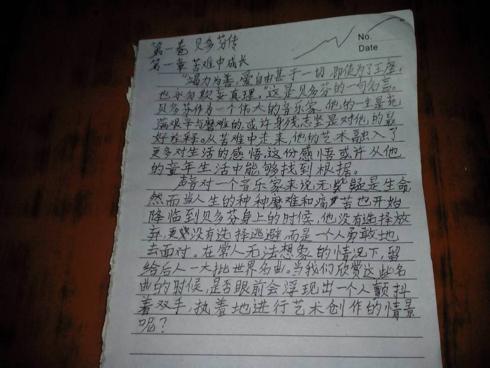 No.
Date
第一卷 贝多芬传
第一章 苦难中成长
"竭力为善，爱自由甚于一切，即使为了王座，
也永勿欺妄真理。"这是贝多芬的一句名言。
贝多芬作为一个伟大的音乐家，他的一生是充
满艰辛与磨难的，或许身残志坚是对他的最
好诠释。从苦难中走来，他的艺术融入了
更多对生活的感悟，这份感悟或许从他
的童年生活中能够找到根据。
声音对一个音乐家来说无疑是生命，
然而当人生的种种磨难和痛苦也开始
降临到贝多芬身上的时候，他没有选择放
弃，更没有选择逃避，而是一个人勇敢地
去面对。在常人无法想象的情况下，留
给后人一大批世界名曲。当我们欣赏这些名
曲的时候，是否眼前会浮现出一个人颤抖
着双手，执着地进行艺术创作的情景
呢？